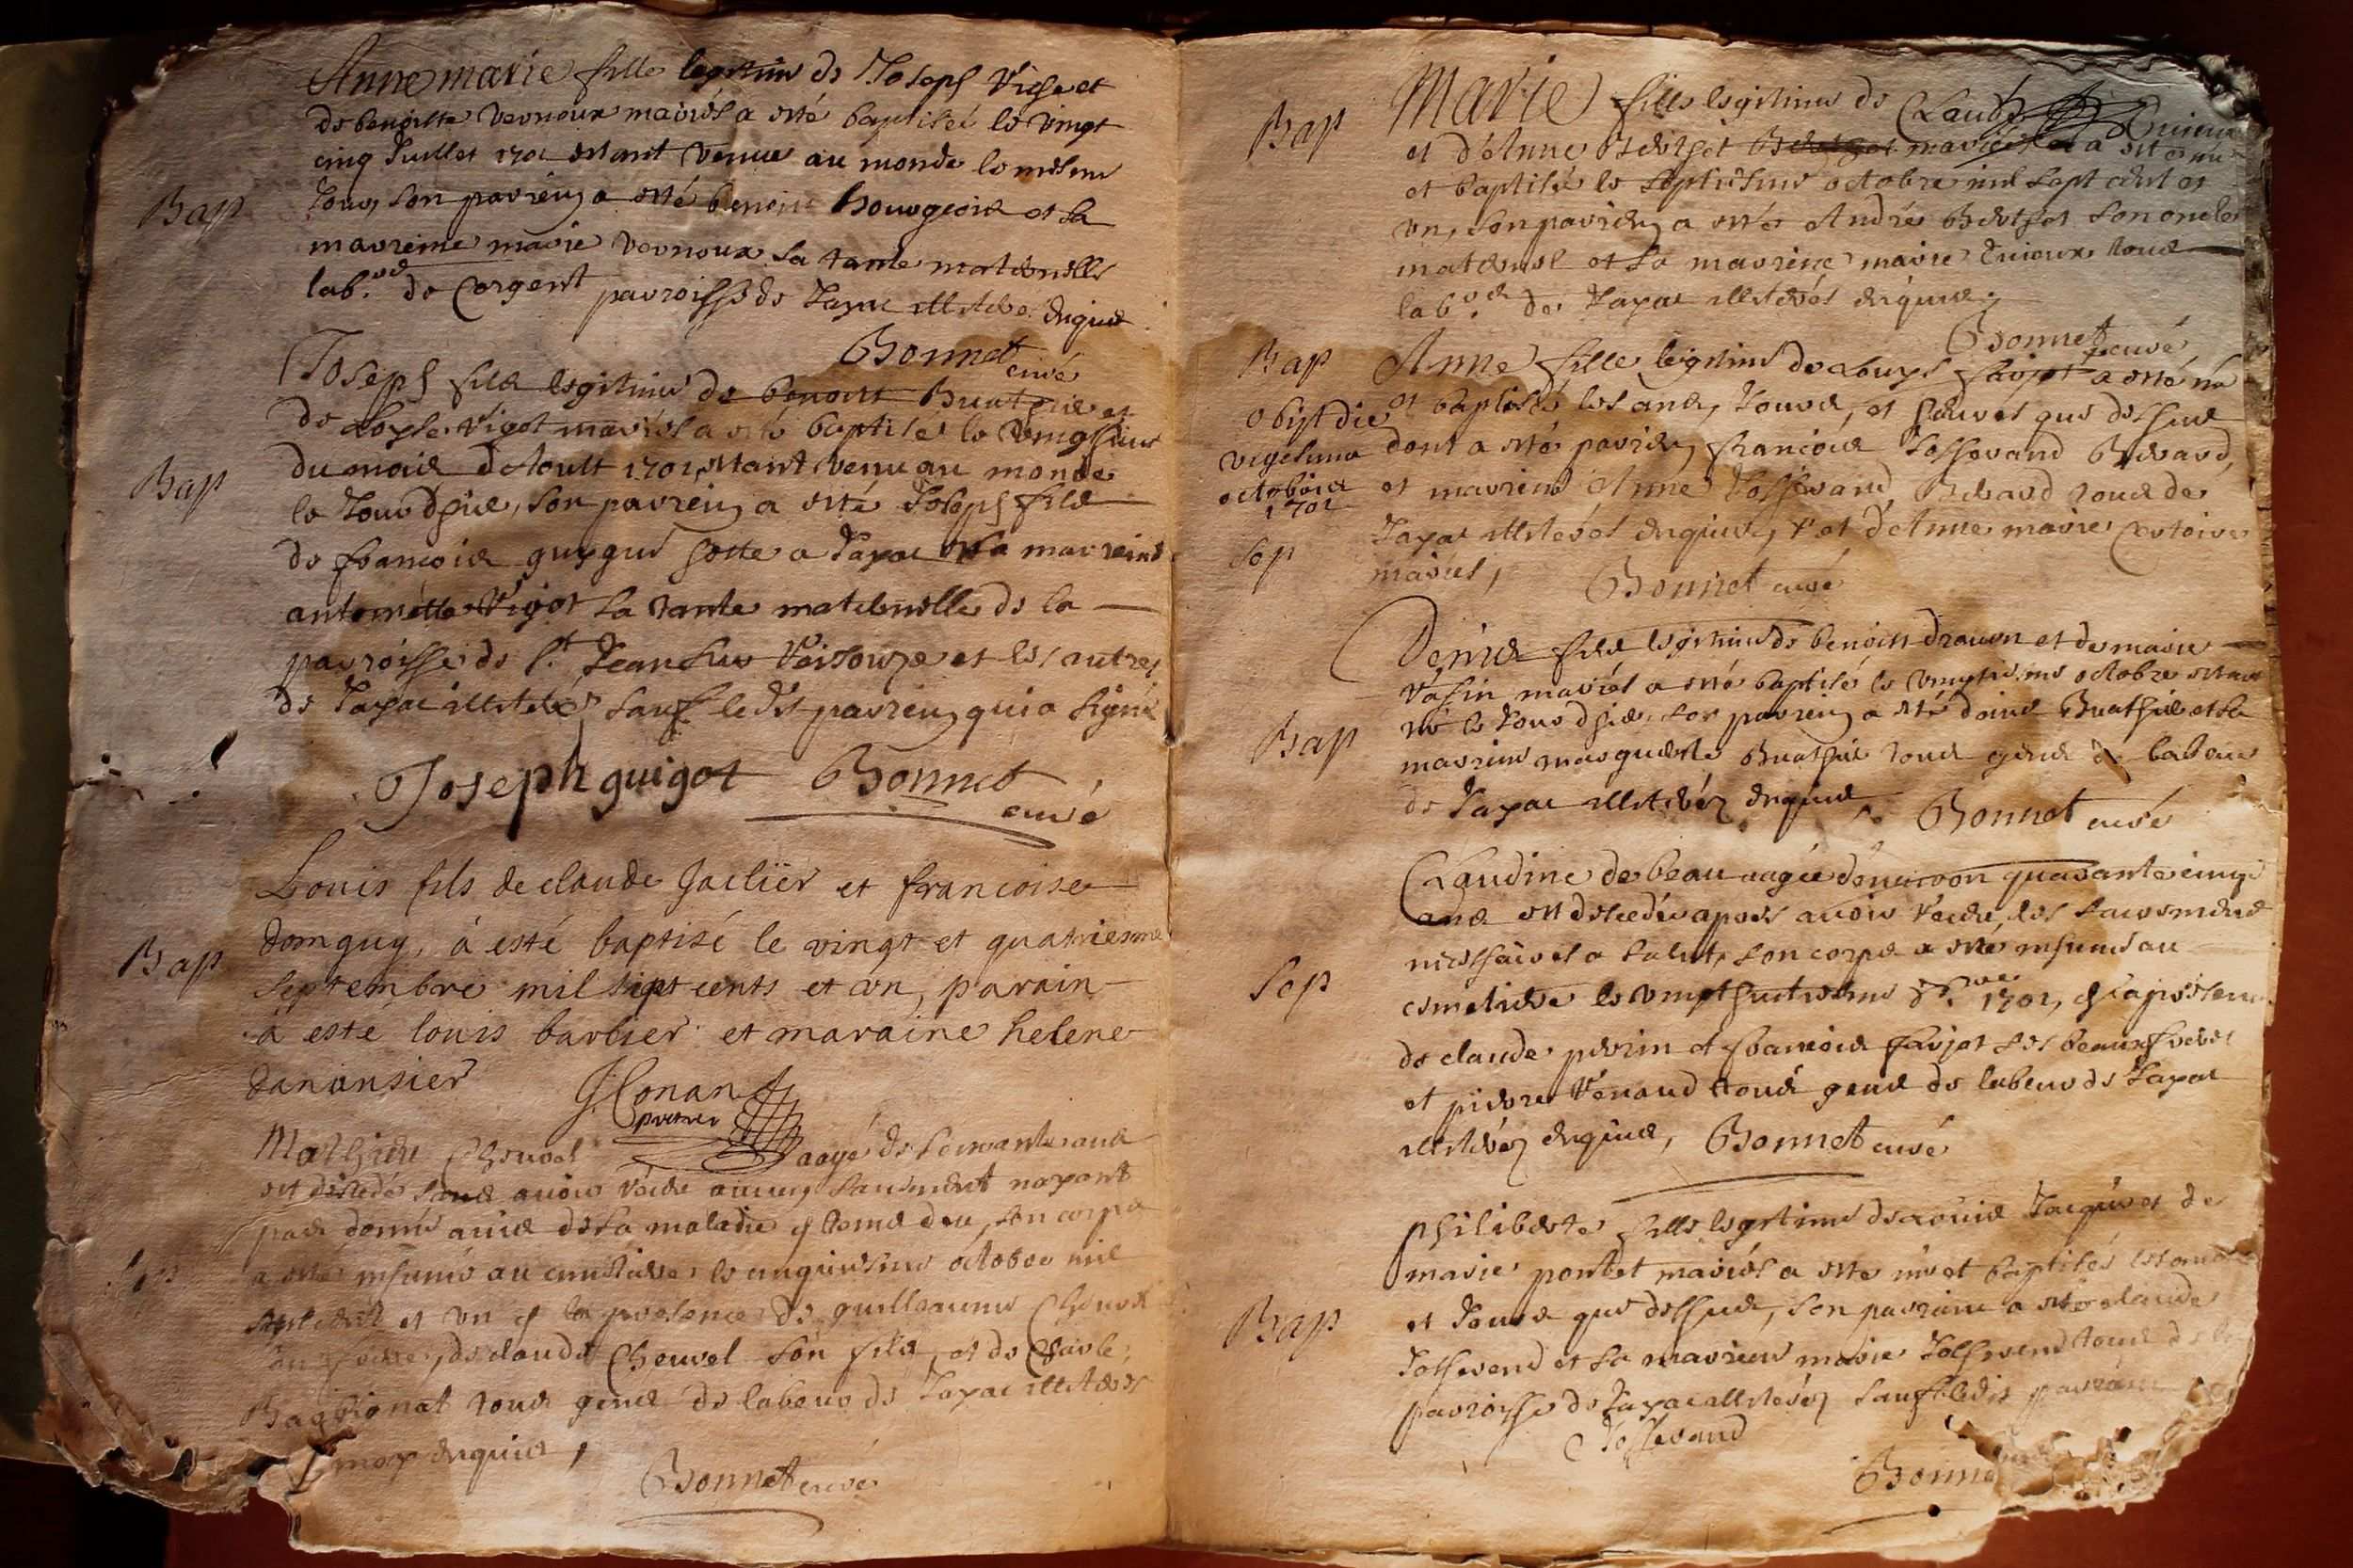 Anne marie fille legitime de Joseph Vighe et
de benoitte vernoux mariés a esté baptiseé le vingt
cinq Juillet 1701 estant venue au monde le mesme
Bap
Jour, son parrein a esté benoit bourgeois et sa
marreine marie vernoux sa tante maternelle
lab.rs de Corgent parroisse de Jayac illiterés enquis
Bonnet curé
Joseph fils legitime de benoist Buathier et
de Loyse Vigot mariés a esté baptisé le
du mois d'Aoust 1701, estant venu au monde
Bap
le Jour d'hier, son parrein a esté Joseph fils
de francois guygot hoste a Jayac et sa marreine
antoinette Vigot sa tante maternelle de la
parroisse de St Jean sur Reisouze et les autres
de Jayac illiterés, sauf ledit parrein qui a signé
Joseph guigot Bonnet
curé
Louis fils de claude Jaclier et francoise
Bap
domguy, à esté baptisé le vingt et quatriesme
septembre mil sept cents et un, parain
à este louis barbier et maraine helene
danansier
J Conand
Mathieu Chevrel aagé de soixante ans
est decedé sans avoir receu aucun sacrement nayant
pas donné avis de sa maladie en temps deu, son corps
a esté inhumé au cimetiere le cinquiesme octobre mil
sept cent et un en la presence de guillaume
son frere, de claude Chevrel son fils, et de Charle
tous gens de labeur de Jayac illiterés
enquis,
Bonnet curé
Bap
Marie fille legitime de Claude
et d'Anne Berthet mariés a esté née
et baptisée le septiesme octobre mil sept cent et
un, son parrein a esté André Berthet son oncle
maternel et sa marreine marie tous
lab.rs de Jayac illiterés enquis
Bonnet curé
Bap
Anne fille legitime de Louys favjet a esté née
et baptisée les ans, Jours, et heures que dessus
obijt die
vigesima
octobris
1701
dont a esté parrein francois Josserand Berard,
et marreine Anne Josserand Berard tous de
Sep
Jayac illiterés enquis, et d'Anne marie
mariés, Bonnet curé
Denis fils legitime de benoist drauon et de marie
mariés a esté baptisé le octobre estant
Bap
né le Jour d'hier, son parrein a esté denis Buathier et sa
marreine marguerite Buathier tous gens de labeur
de Jayac illiterés enquis
Bonnet curé
Claudine de beau aagée d'environ quarante cinq
ans est decedée apres avoir receu les sacremens
Sep
necessaires a salut, son corps a esté inhumé au
cimetiere le vingt huitiesme 8.bre 1701, en la presence
de claude perrin et francois favjet ses beaux freres
et pierre Renaud tous gens de labeur de Jayac
illiterés enquis, Bonnet curé
philiberte fille legitime de Louis Jacquet et de
marie pontet mariés a esté née et baptisée les ans
Bap
et Jours que dessus, son parrein a esté claude
Josserand et sa marreine marie Josserand tous de la
parroisse de Jayac illiterés sauf ledit parrein
Josserand
Bonnet